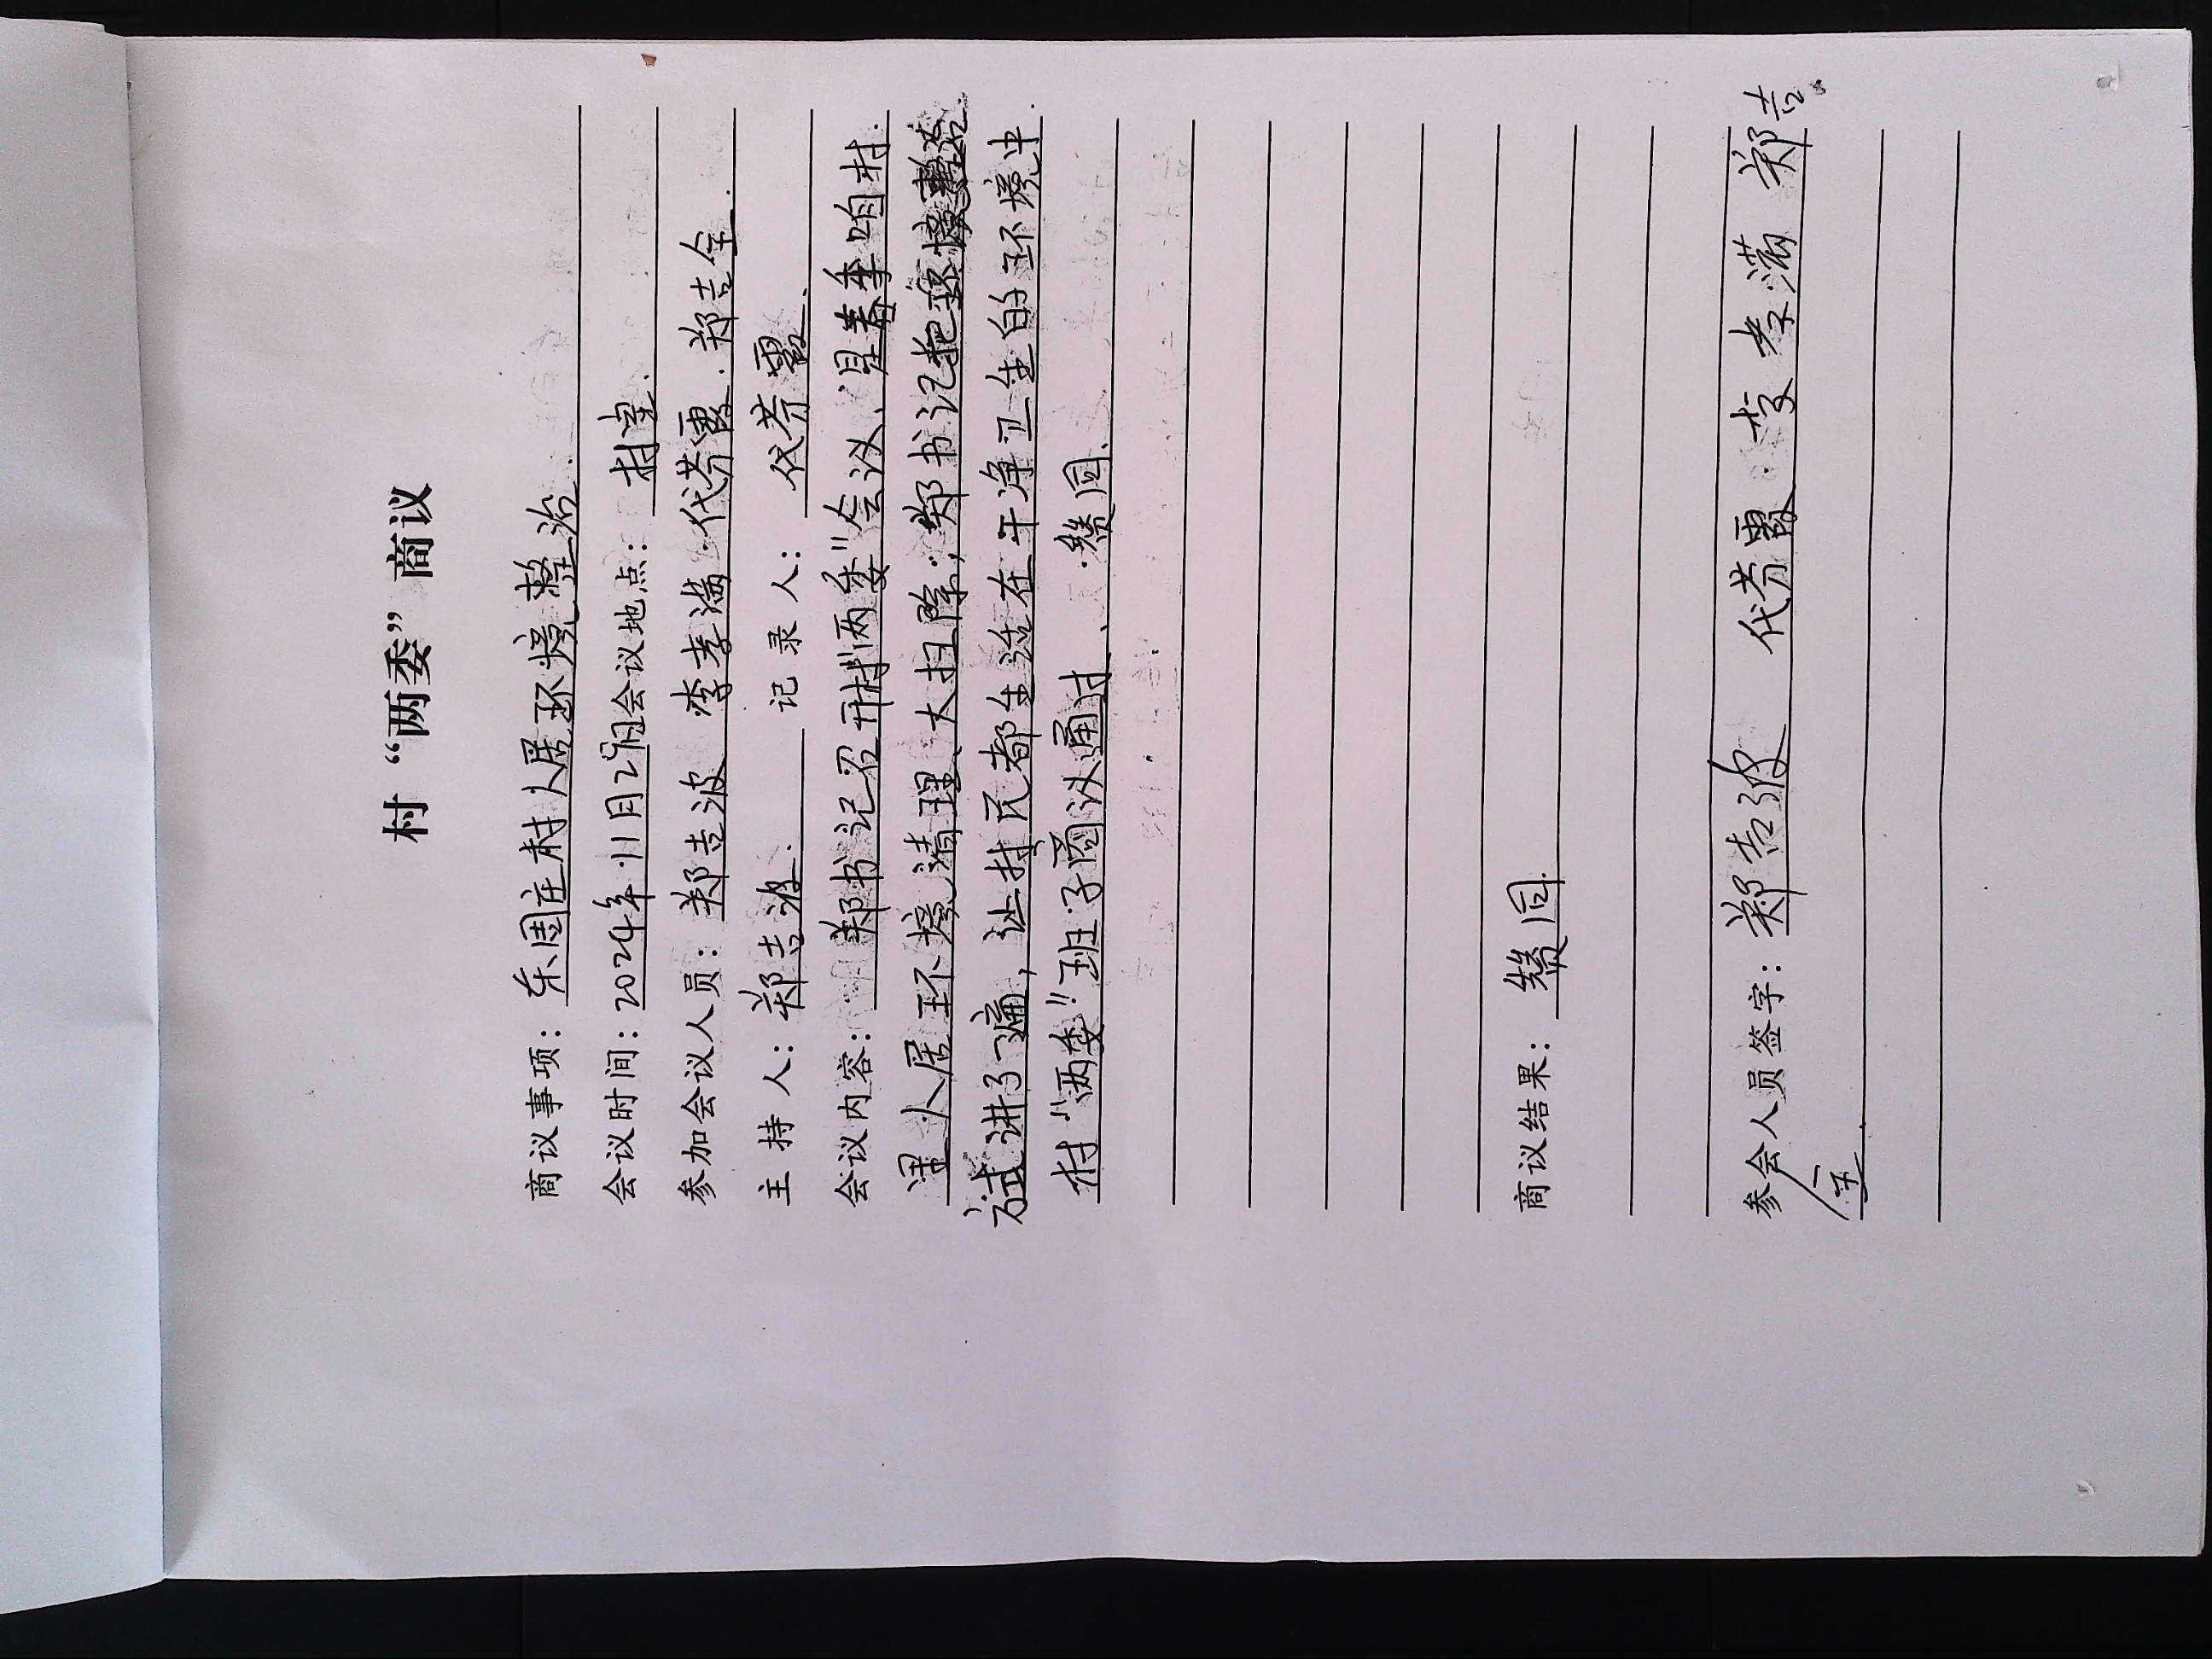 村“两委”商议
商议事项：东周庄村人居环境整治.
会议时间：2024年11月29日会议地点：村室.
参加会议人员：郑吉波 李孝满.代芳霞.郑吉全.
主 持 人：郑吉波. 记 录 人：代芳霞.
会议内容：郑书记召开村“两委”会议、混春季咱村.
里人居环境清理、大扫除；郑书记把环境整治.
讲了遍，让村民都生活在干净卫生的环境中.
村“两委”班子商议通过、.赞同.
商议结果：赞同.
参会人员签字：郑吉波 代芳霞.李孝满 郑吉
全.